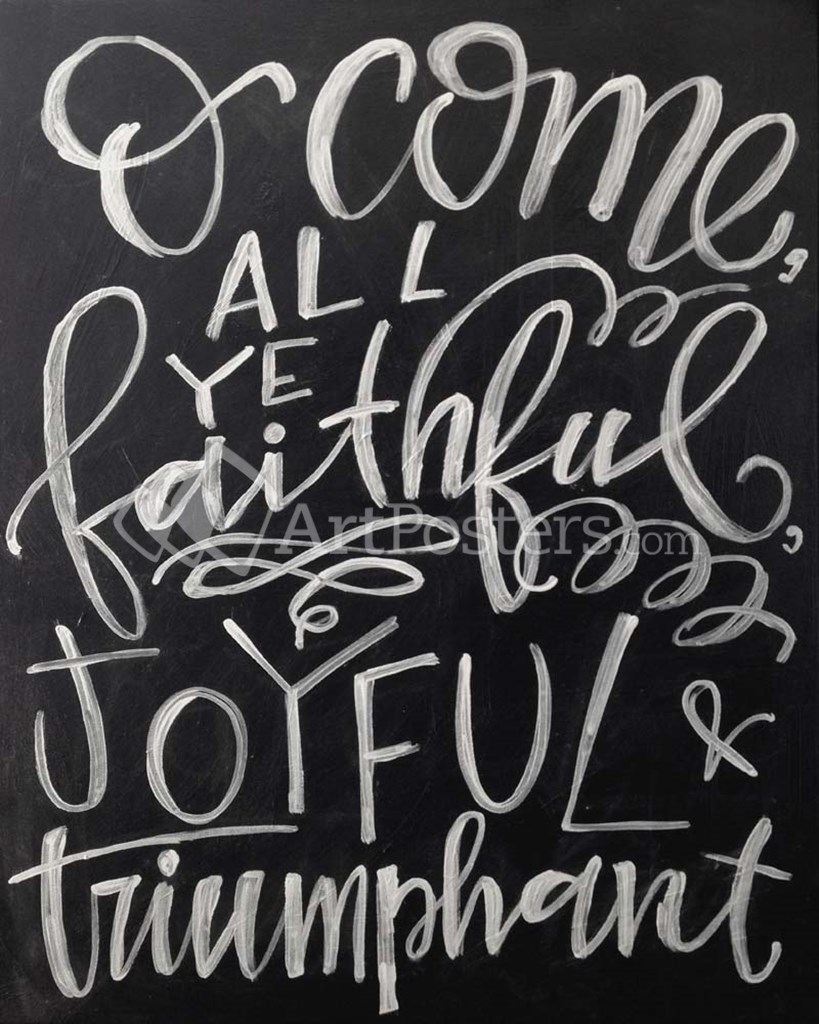 O come,
ALL
YE
faithful,
JOYFUL &
triumphant
ArtPosters.com